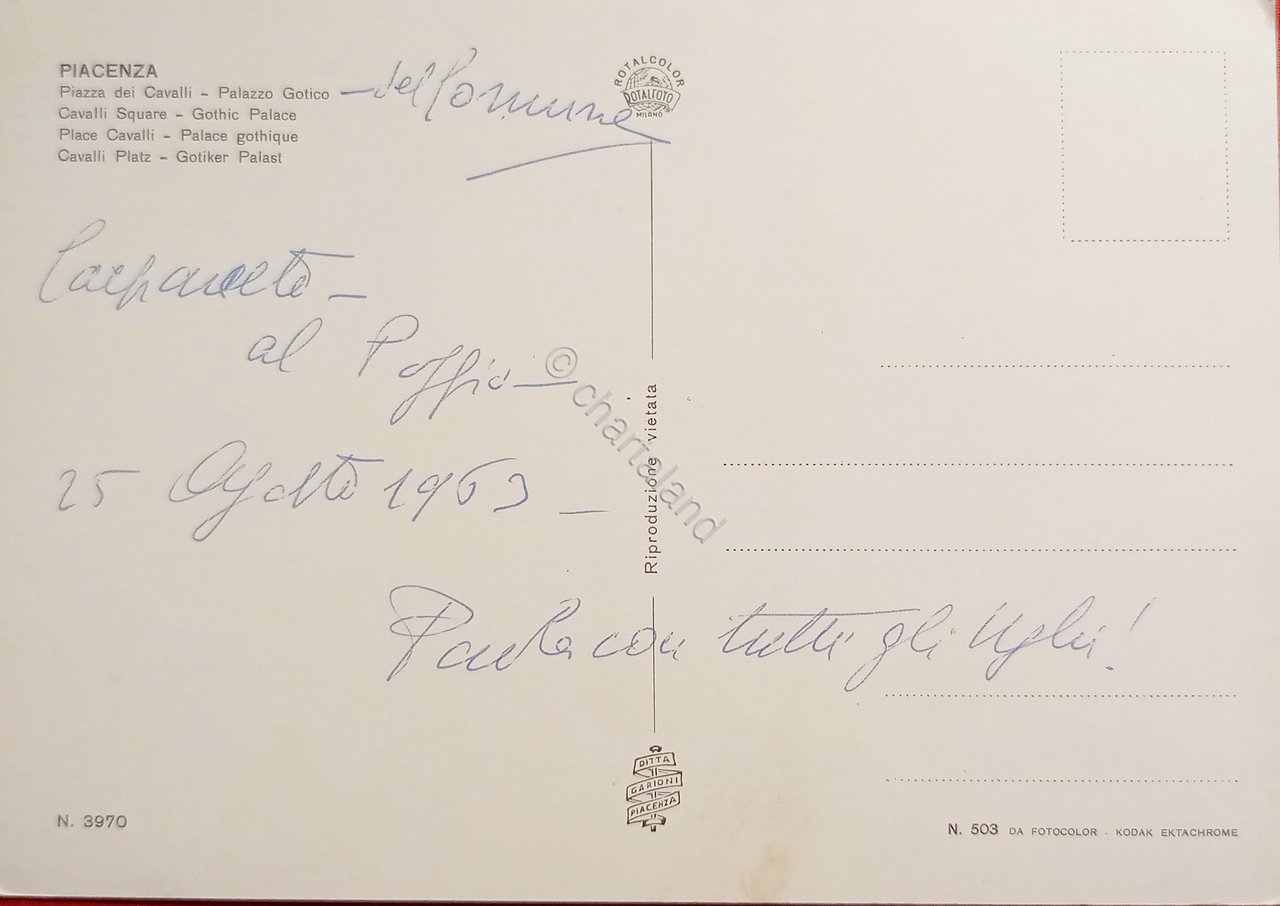 PIACENZA
Piazza dei Cavalli - Palazzo Gotico - del Comune
Cavalli Square - Gothic Palace
Place Cavalli - Palace gothique
Cavalli Platz - Gotiker Palast
ROTALCOLOR
ROTALFOTO
MILANO
Carpaneto -
al Poggio -
25 Agosto 1963 -
Paola con tutti gli
Riproduzione vietata
© chartaland
DITTA
GARIONI
PIACENZA
N. 3970
N. 503 DA FOTOCOLOR - KODAK EKTACHROME